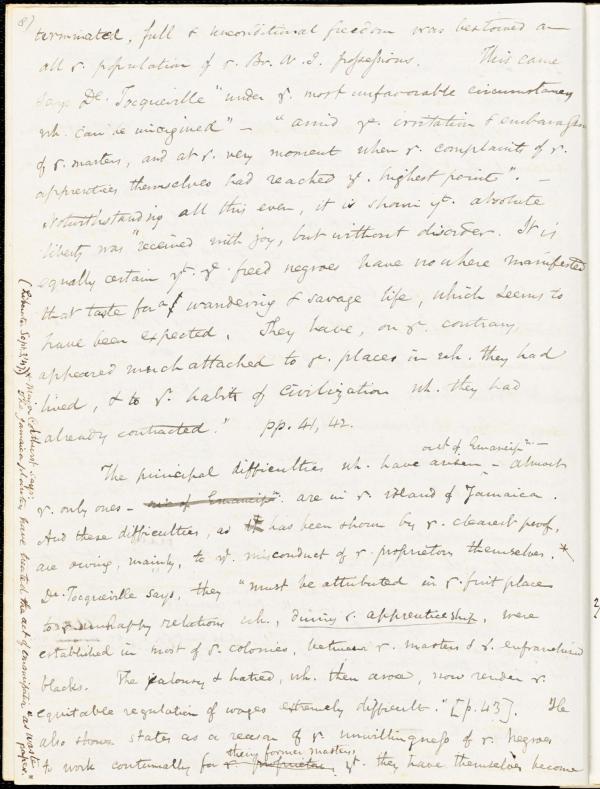 8)
terminated, full & unconditional freedom was bestowed on
all yᵉ. population of yᵉ. Br. W. I. possessions. This came
says De Tocqueville "under yᵉ. most unfavorable circumstances
wh. can be imagined" – "amid yᵉ. irritation & embarassm
of yᵉ. masters, and at yᵉ. very moment when yᵉ. complaints of yᵉ.
apprentices themselves had reached yᵉ. highest point". –
Notwithstanding all this even, it is shown yᵗ. absolute
liberty was "received with joy, but without disorder. It is
equally certain yᵗ. yᵉ. freed negroes have nowhere manifested
that taste for a wandering & savage life, which seems to
have been expected. They have, on yᵉ. contrary,
appeared much attached to yᵉ. places in wh. they had
lived, & to yᵉ. habits of civilization wh. they had
already contracted." pp. 41, 42.
out of Emancipⁿ. –
The principal difficulties wh. have arisen – almost
yᵉ. only ones – are in yᵉ. island of Jamaica.
And these difficulties, as has been shown by yᵉ. clearest proof,
are owing, mainly, to yᵉ. misconduct of yᵉ. proprietors themselves. *
De Tocqueville says, they "must be attributed in yᵉ. first place
to yᵉ. unhappy relations wh., during yᵉ. apprenticeship, were
established in most of yᵉ. colonies, between yᵉ. masters & yᵉ. enfranchised
blacks. The jealousy & hatred, wh. then arose, now render yᵉ.
equitable regulation of wages extremely difficult." [p. 43]. He
also shows states as a reason of yᵉ. unwillingness of yᵉ. Negroes
their former masters
to work continually for yᵉ. proprietors, yᵗ. they have themselves become
Major Colthurst says:
"The Jamaica planters have treated the act of emancipation as waste paper."